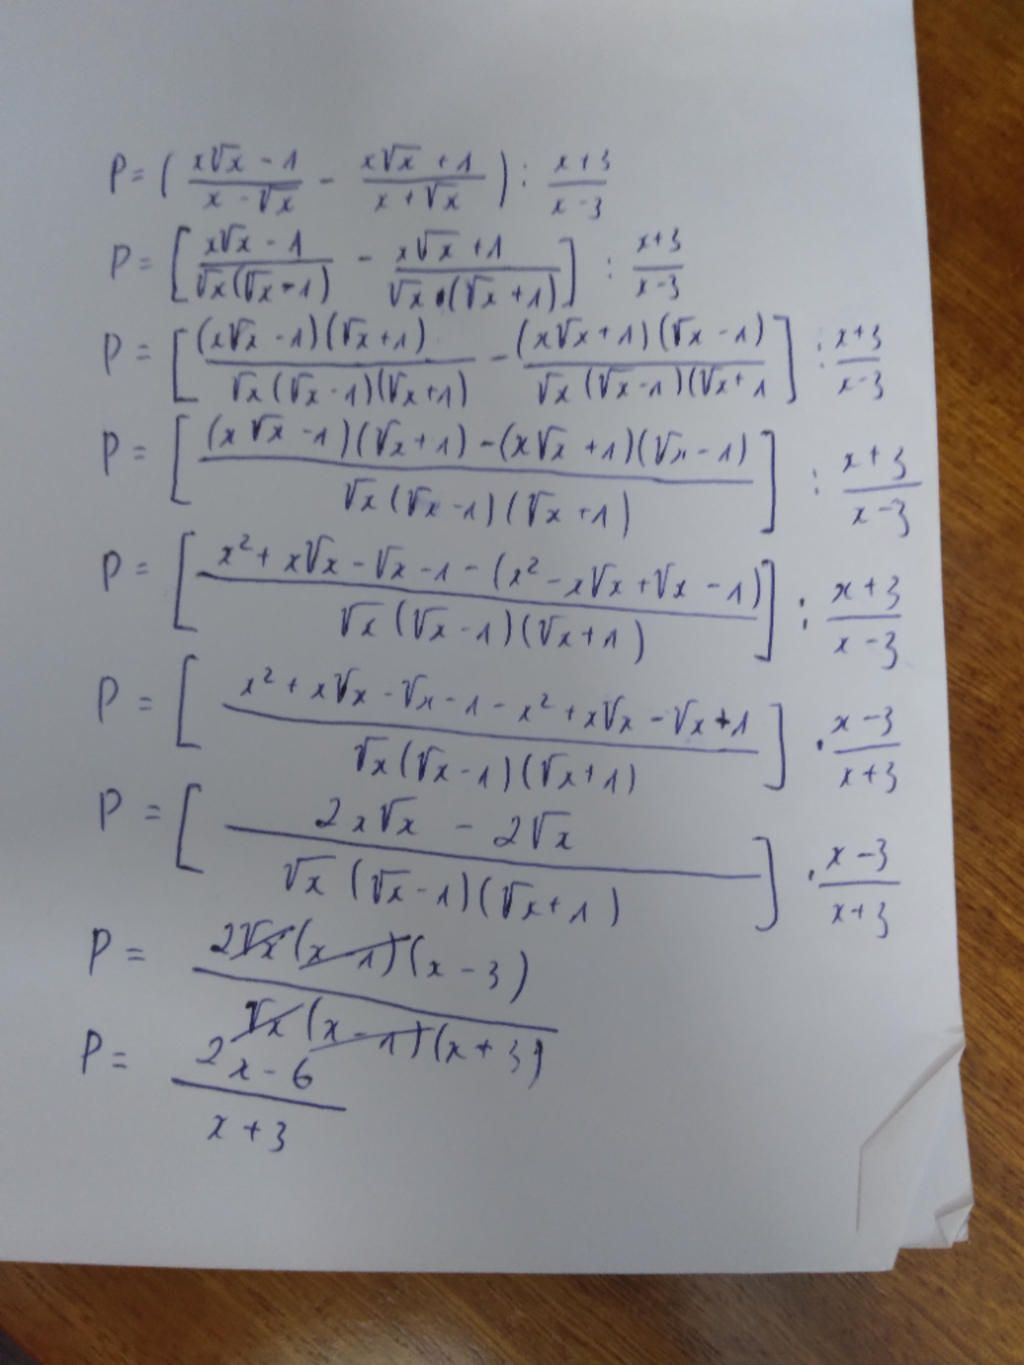 P = ( (x√x - 1)/(x - √x) - (x√x + 1)/(x + √x) ) : (x + 3)/(x - 3)
P = [ (x√x - 1)/(√x(√x - 1)) - (x√x + 1)/(√x · (√x + 1)) ] : (x + 3)/(x - 3)
P = [ (x√x - 1)(√x + 1)/(√x(√x - 1)(√x + 1)) - (x√x + 1)(√x - 1)/(√x(√x - 1)(√x + 1 ) ] : (x + 3)/(x - 3)
P = [ ((x√x - 1)(√x + 1) - (x√x + 1)(√x - 1))/(√x(√x - 1)(√x + 1)) ] : (x + 3)/(x - 3)
P = [ (x² + x√x - √x - 1 - (x² - x√x + √x - 1))/(√x(√x - 1)(√x + 1)) ] : (x + 3)/(x - 3)
P = [ (x² + x√x - √x - 1 - x² + x√x - √x + 1)/(√x(√x - 1)(√x + 1)) ] · (x - 3)/(x + 3)
P = [ (2x√x - 2√x)/(√x(√x - 1)(√x + 1)) ] · (x - 3)/(x + 3)
P = (2√x(x - 1)(x - 3))/(√x(x - 1)(x + 3))
P = (2x - 6)/(x + 3)